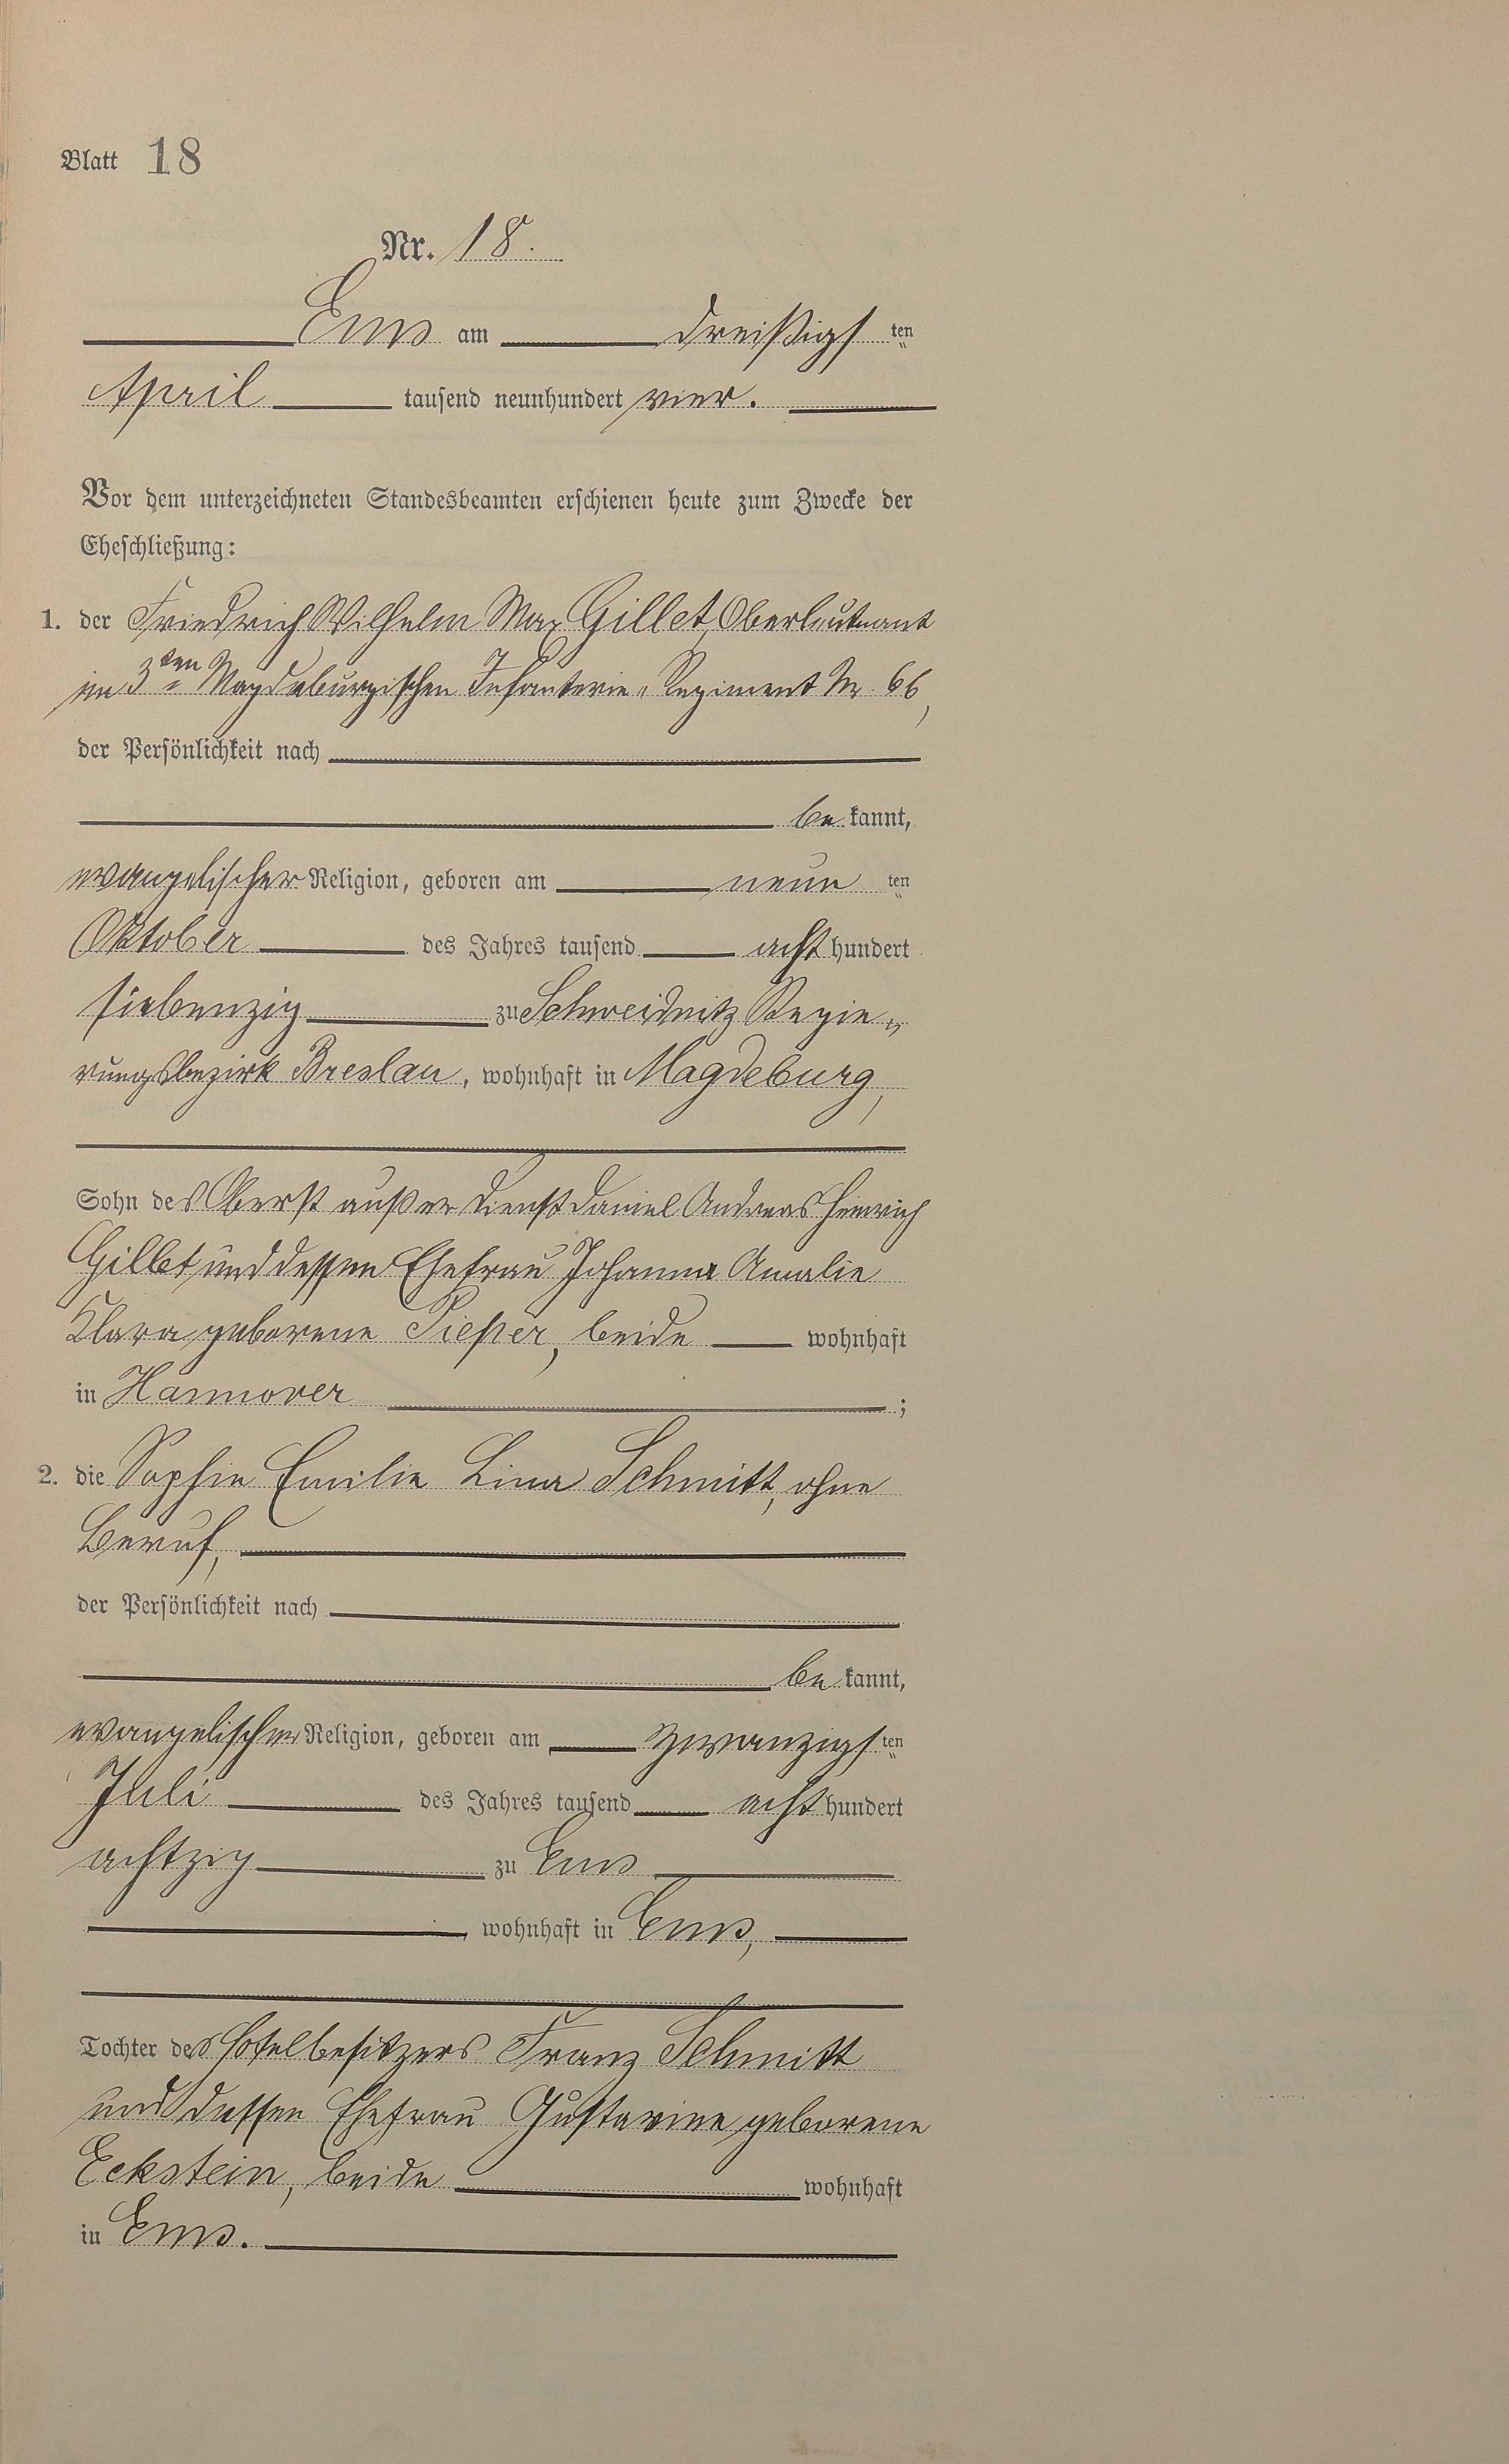 Blatt 18
Nr. 18.
Ems am dreißigsten
April tausend neunhundert vier.
Vor dem unterzeichneten Standesbeamten erschienen heute zum Zwecke der
Eheschließung:
1. der Friedrich Wilhelm Max Gillet, Oberleutnant
im 3ten Magdeburgischen Infanterie-Regiment Nr. 66,
der Persönlichkeit nach
bekannt,
evangelischer Religion, geboren am neunten
Oktober des Jahres tausend achthundert
siebenzig zu Schweidnitz Regie-
rungsbezirk Breslau, wohnhaft in Magdeburg,
Sohn des Oberst außer Dienst Daniel Andreas Heinrich
Gillet und dessen Ehefrau Johanna Amalie
Klara geborene Pieper, beide wohnhaft
in Hannover ;
2. die Sophie Emilie Lina Schmitt, ohne
Beruf,
der Persönlichkeit nach
bekannt,
evangelischer Religion, geboren am zwanzigsten
Juli des Jahres tausend achthundert
achtzig zu Ems
, wohnhaft in Ems,
Tochter des Hotelbesitzers Franz Schmitt
und dessen Ehefrau Gustavine geborene
Eckstein, beide wohnhaft
in Ems.